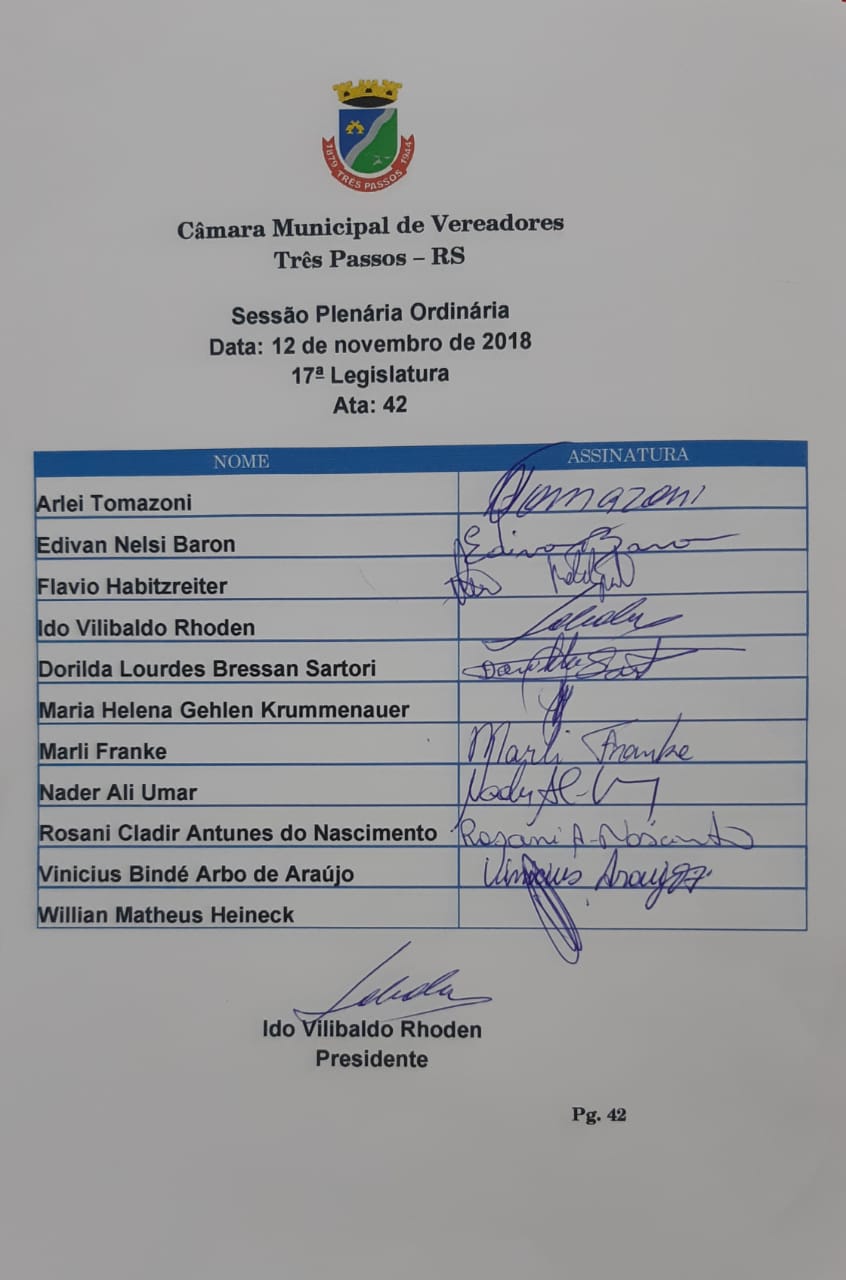 1879 TRÊS PASSOS 1944
Câmara Municipal de Vereadores
Três Passos – RS
Sessão Plenária Ordinária
Data: 12 de novembro de 2018
17ª Legislatura
Ata: 42
NOME ASSINATURA
Arlei Tomazoni Tomazoni
Edivan Nelsi Baron Edivan Baron
Flavio Habitzreiter
Ido Vilibaldo Rhoden
Dorilda Lourdes Bressan Sartori
Maria Helena Gehlen Krummenauer
Marli Franke Marli Franke
Nader Ali Umar
Rosani Cladir Antunes do Nascimento Rosani A.
Vinicius Bindé Arbo de Araújo Vinicius Araujo
Willian Matheus Heineck
Ido Vilibaldo Rhoden
Presidente
Pg. 42